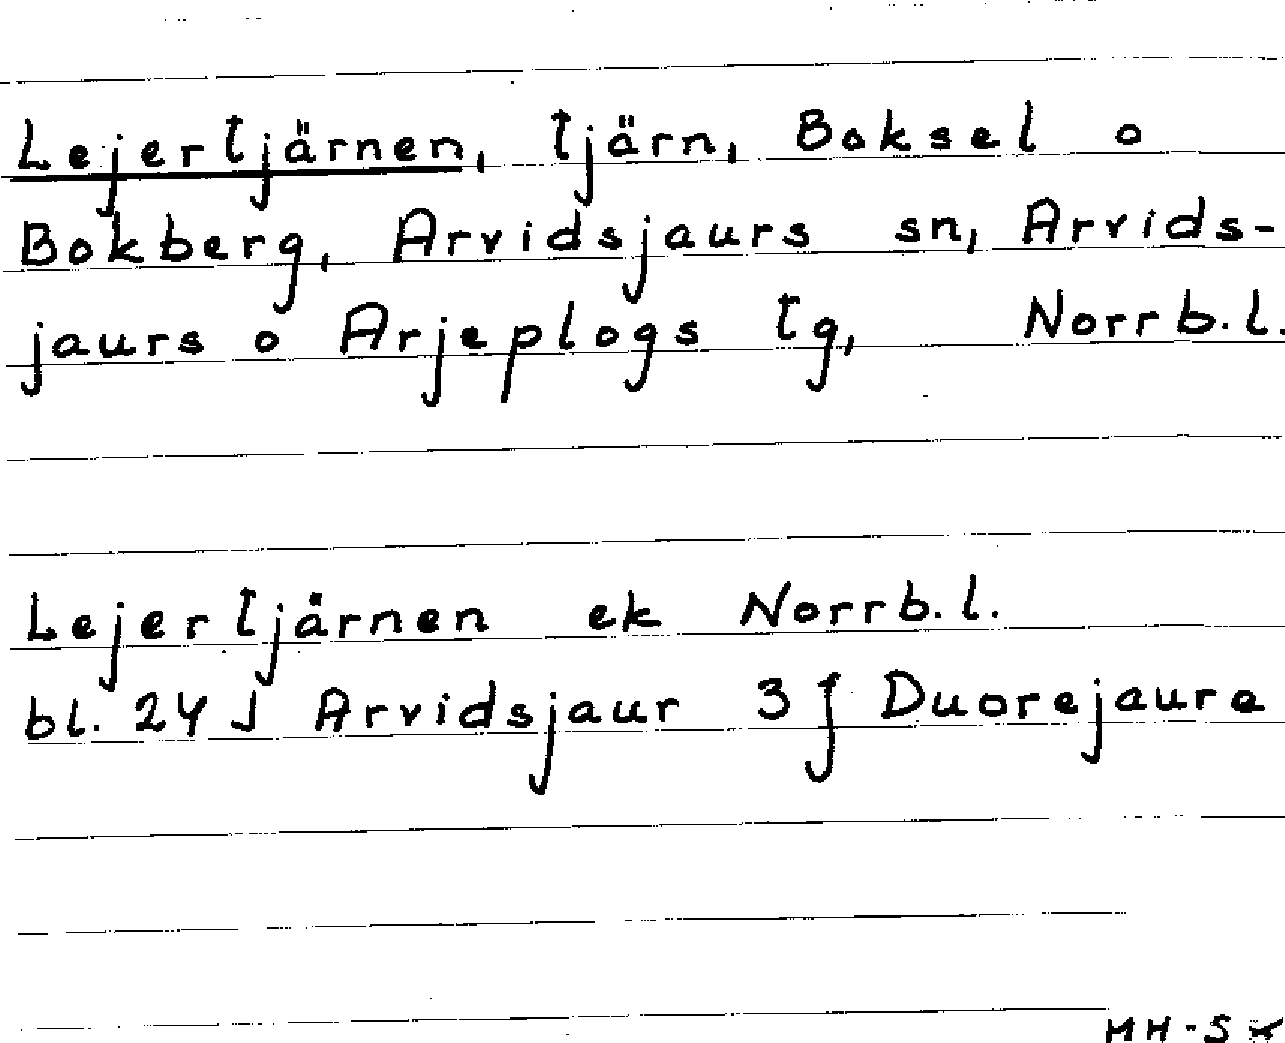 Lejertjärnen, tjärn, Boksel o
Bokberg, Arvidsjaurs sn, Arvids-
jaurs o Arjeplogs tg, Norrb.l.
Lejertjärnen ek Norrb.l.
bl. 24 J Arvidsjaur 3 f Duorejaure